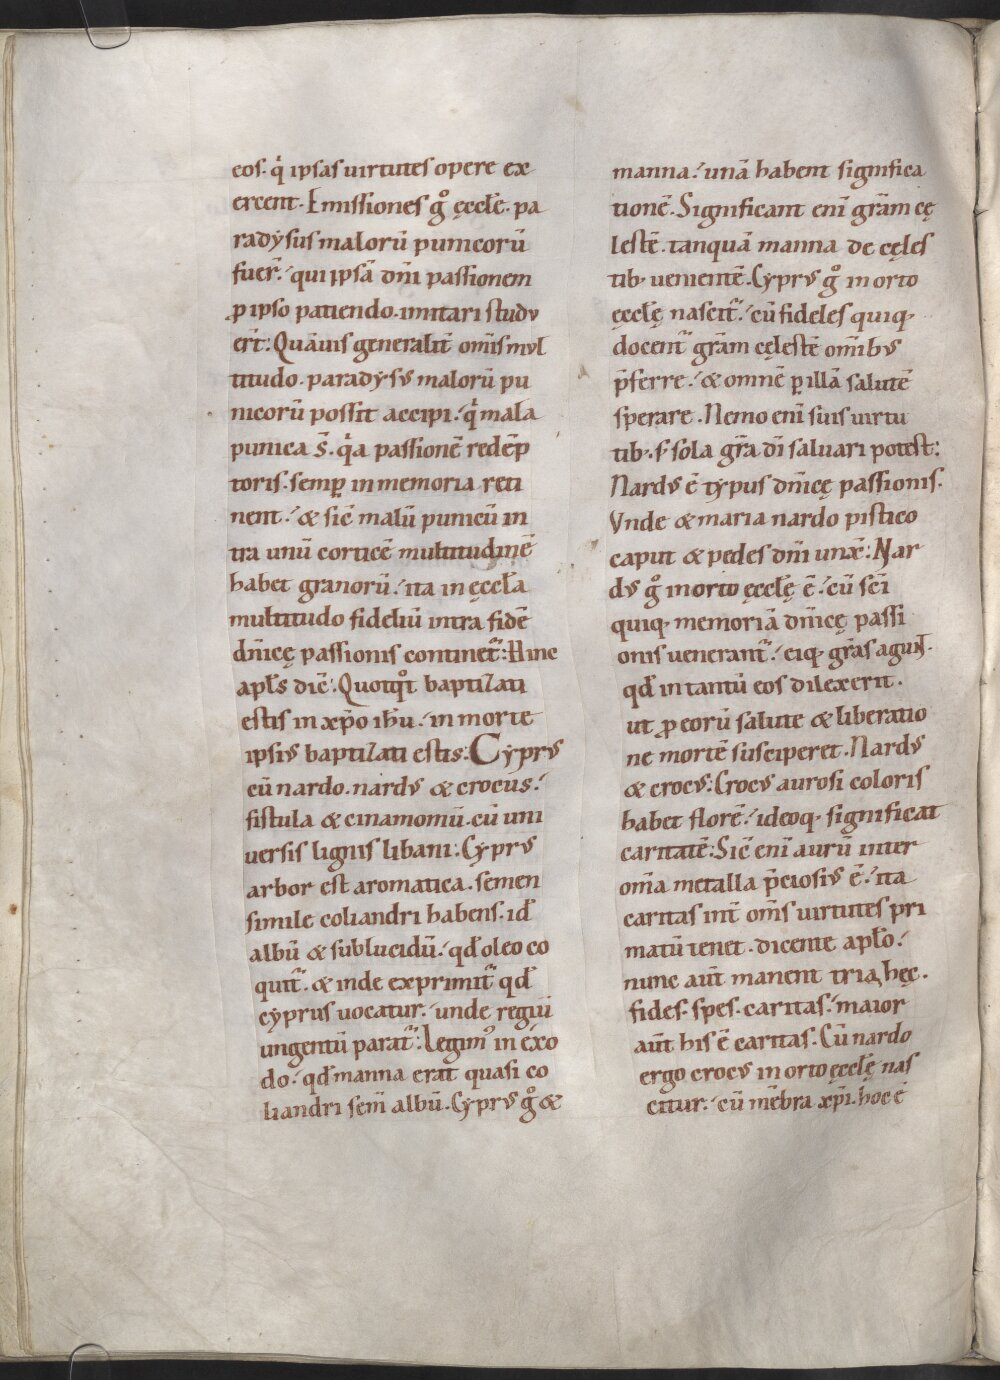 eos. q̇ ipsas uirtutes opere ex
ercent. Emissiones g̊ ęccl̄ę. pa
radẏsus malorū punicorū
fuer̄. qui ipsā dn̄i passionem
ꝓ ipso patiendo. imitari studu
er̄t: Quāuis generalit̄ om̄is mul
titudo. paradẏsus malorū pu
nicorū possit accipi. q̇ mala
punica s̄. q̇a passionē redēp
toris. semꝑ in memoria reti
nent. & sic̄ malū punicū in
tra unū corticē multitudinē
habet granorū. ita in ęccl̄a
multitudo fideliū intra fidē
dn̄icę passionis continet᷑: Hinc
apl̄s dic̄. Quotqͦt baptizati
estis in xp̄o ih̄u. in morte
ipsius baptizati estis: Cẏprus
cū nardo. nardus & crocus.
fistula & cinamomū. cū uni
uersis lignis libani: Cẏprus
arbor est aromatica. semen
simile coliandri habens. id̄
albū & sublucidū. qd̄ oleo co
quit᷑. & inde exprimit᷑ qd̄
cẏprus uocatur. unde regiū
ungentū parat᷑: Legim᷒ in éxo
do. qd̄ manna erat quasi co
liandri sem̄ albū. Cẏprus g̊ &
manna. unā habent significa
tionē. Significant eni᷑ gr̄am cę
lestē. tanquā manna de cęles
tib; uenientē. Cẏprus g̊ in orto
ęccl̄ę nascit᷑. cū fideles quiq;
docent᷑ gr̄am cęlestē om̄ibus
p̄ferre. & omnē ꝑ illā salutē
sperare. Nemo eni᷑ suis uirtu
tib;. s; sola gr̄a dī saluari potest:
Nardus ē tẏpus dn̄icę passionis.
Vnde & maria nardo pistico
caput & pedes dn̄i unx̄: Nar
dus g̊ in orto ęccl̄ę ē. cū sc̄i
quiq; memoriā dn̄icę passi
onis uenerant᷑. eiq; gr̄as agunt.
qd̄ in tantū eos dilexerit.
ut ꝓ eorū salute & liberatio
ne mortē susciperet. Nardus
& crocus: Crocus aurosi coloris
habet florē. ideoq; significat
caritatē: Sic̄ eni᷑ aurū inter
om̄a metalla p̄ciosius ē. ita
caritas int̄ om̄s uirtutes pri
matū tenet. dicente apl̄o.
nunc aūt manent tria hęc.
fides. spes. caritas. maior
aūt his ē caritas. Cū nardo
ergo crocus in orto ęccl̄ę nas
citur. cū mēbra xp̄i. hoc ē